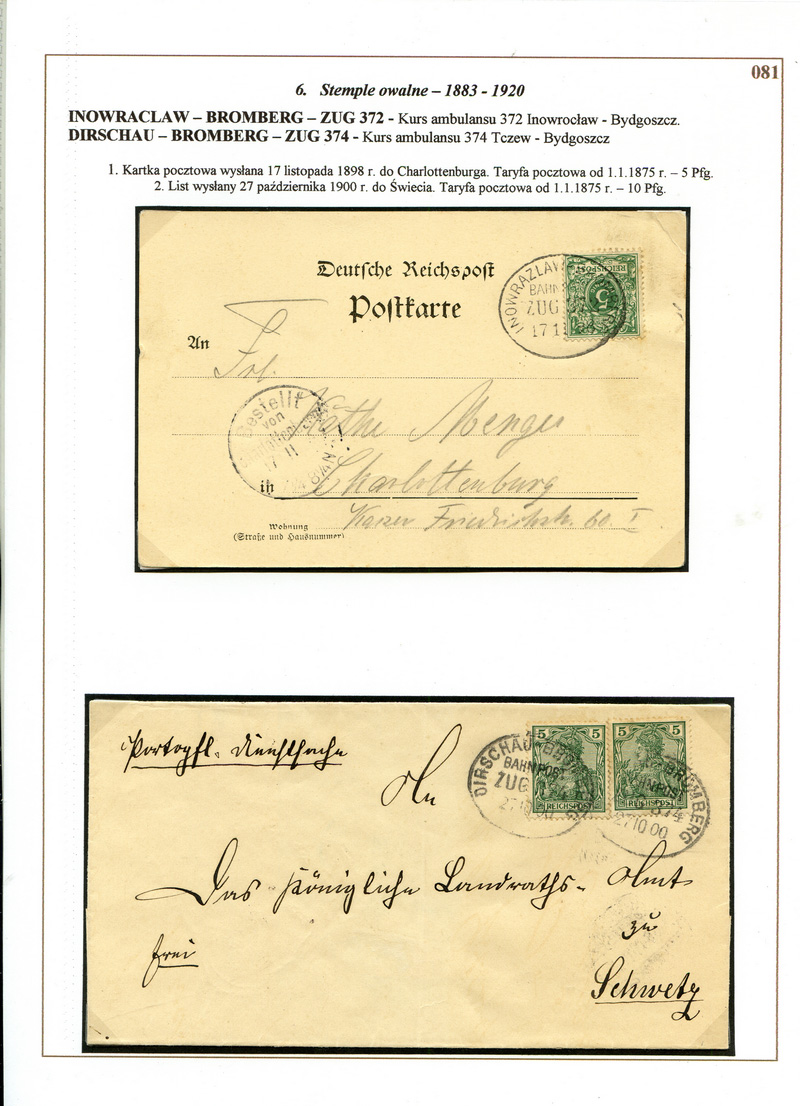 081
6. Stemple owalne – 1883 - 1920
INOWRACLAW – BROMBERG – ZUG 372 - Kurs ambulansu 372 Inowrocław - Bydgoszcz.
DIRSCHAU – BROMBERG – ZUG 374 - Kurs ambulansu 374 Tczew - Bydgoszcz
1. Kartka pocztowa wysłana 17 listopada 1898 r. do Charlottenburga. Taryfa pocztowa od 1.1.1875 r. – 5 Pfg.
2. List wysłany 27 października 1900 r. do Świecia. Taryfa pocztowa od 1.1.1875 r. – 10 Pfg.
Deutsche Reichspost
Postkarte
INOWRAZLAW
BAHN
ZUG
17 1
REICHSPOST
5
An
Frl.
Bestellt
von
17 11
Käthe Menger
in Charlottenburg
Kaiser Friedrichstr. 60. I
Wohnung
(Straße und Hausnummer)
Portopfl. Dienstsache
An
DIRSCHAU BRO
BAHNPOST
ZUG
27 10 00
5 5
REICHSPOST
5 5
REICHSPOST
BROMBERG
NPOST
374
27 10 00
Das Königliche Landraths- Amt
zu
frei
Schwetz